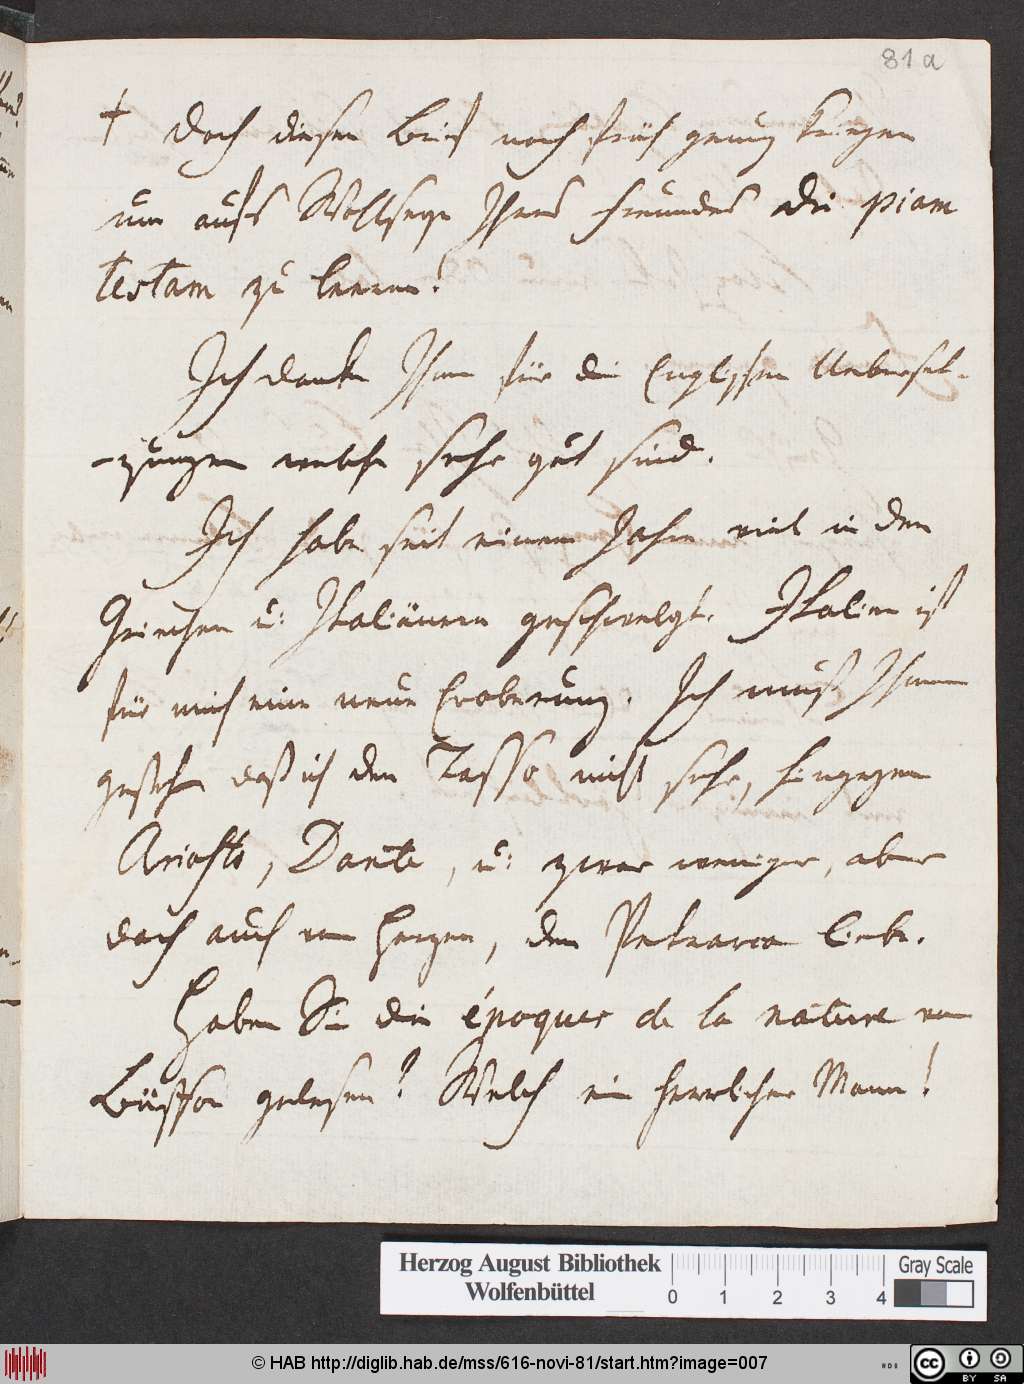 81a
† doch diesen Brief noch früh genug kriegen
um aufs Wohlseyn Ihres Freundes die piam
testam zu leeren!
Ich danke Ihnen für die Englischen Ueberset-
-zungen welche sehr gut sind.
Ich habe seit einem Jahre viel in den
Griechen u: Italiänern geschwelgt. Italien ist
für mich eine neue Eroberung. Ich muß Ihnen
gestehn daß ich den Tasso nicht sehr, hingegen
Ariosto, Dante, u: zwar weniger, aber
doch auch von Herzen, den Petrarca liebe.
Haben Sie die époques de la nature von
Büffon gelesen? Welch ein herrlicher Mann!
Herzog August Bibliothek
Wolfenbüttel
0 1 2 3 4
Gray Scale
© HAB http://diglib.hab.de/mss/616-novi-81/start.htm?image=007
cc BY SA